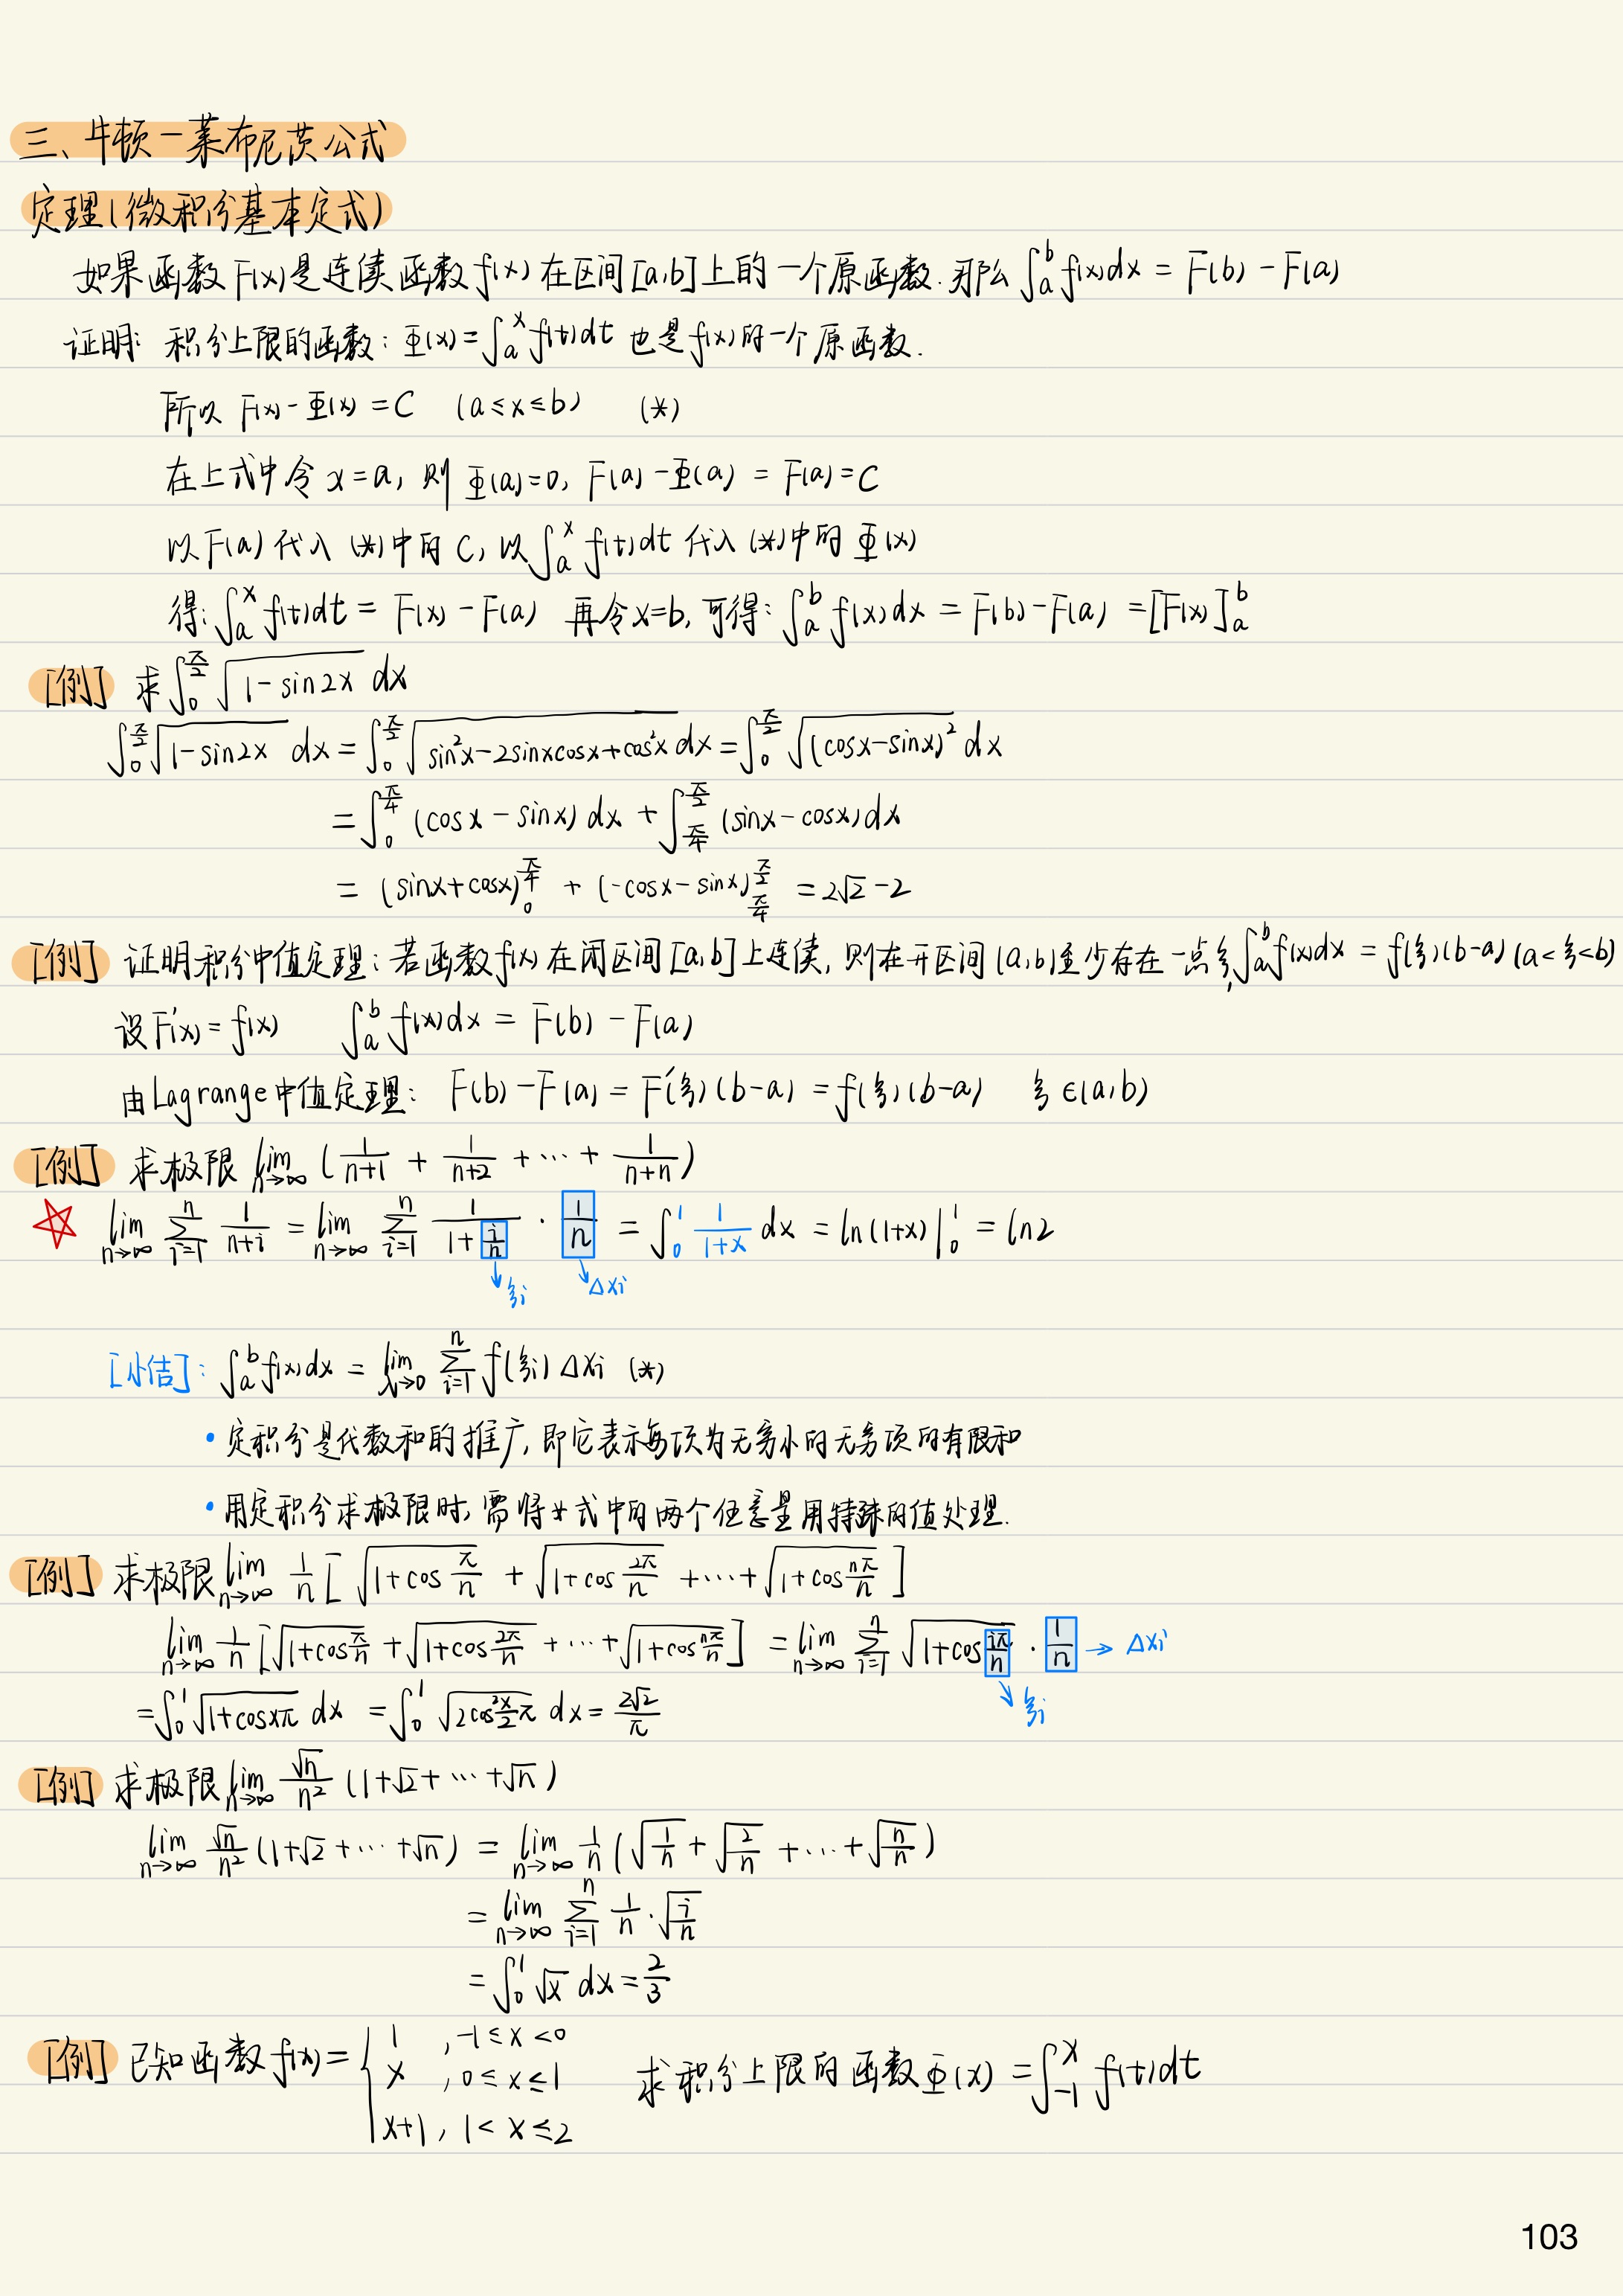 三、牛顿－莱布尼茨公式
定理(微积分基本定式)
如果函数F(x)是连续函数f(x)在区间[a,b]上的一个原函数.那么 ∫_a^b f(x)dx = F(b) - F(a)
证明: 积分上限的函数: Φ(x)=∫_a^x f(t)dt 也是f(x)的一个原函数.
所以 F(x)-Φ(x)=C (a≤x≤b) (*)
在上式中令x=a, 则Φ(a)=0, F(a)-Φ(a) = F(a)=C
以F(a)代入(*)中的C, 以∫_a^x f(t)dt代入(*)中的Φ(x)
得: ∫_a^x f(t)dt = F(x)-F(a) 再令x=b, 可得: ∫_a^b f(x)dx = F(b)-F(a) =[F(x)]_a^b
[例] 求∫_0^{π/2} √(1-sin2x) dx
∫_0^{π/2} √(1-sin2x) dx = ∫_0^{π/2} √(sin²x-2sinxcosx+cos²x) dx = ∫_0^{π/2} √((cosx-sinx)²) dx
= ∫_0^{π/4} (cosx-sinx) dx + ∫_{π/4}^{π/2} (sinx-cosx)dx
= (sinx+cosx)_0^{π/4} + (-cosx-sinx)_{π/4}^{π/2} = 2√2-2
[例] 证明积分中值定理: 若函数f(x)在闭区间[a,b]上连续, 则在开区间(a,b)至少存在一点ξ, ∫_a^b f(x)dx = f(ξ)(b-a) (a<ξ<b)
设F'(x)=f(x) ∫_a^b f(x)dx = F(b)-F(a)
由Lagrange中值定理: F(b)-F(a) = F'(ξ)(b-a) = f(ξ)(b-a) ξ∈(a,b)
[例] 求极限 lim_{n→∞} (1/(n+1) + 1/(n+2) + ⋯ + 1/(n+n))
lim_{n→∞} Σ_{i=1}^n 1/(n+i) = lim_{n→∞} Σ_{i=1}^n 1/(1+i/n) · 1/n = ∫_0^1 1/(1+x) dx = ln(1+x)|_0^1 = ln2
ξi Δxi
[小结]: ∫_a^b f(x)dx = lim_{λ→0} Σ_{i=1}^n f(ξi)Δxi (*)
• 定积分是代数和的推广, 即它表示每项为无穷小的无穷项的有限和
• 用定积分求极限时, 需将*式中的两个任意量用特殊的值处理.
[例] 求极限 lim_{n→∞} 1/n [√(1+cos π/n) + √(1+cos 2π/n) + ⋯ + √(1+cos nπ/n)]
lim_{n→∞} 1/n [√(1+cos π/n) + √(1+cos 2π/n) + ⋯ + √(1+cos nπ/n)] = lim_{n→∞} Σ_{i=1}^n √(1+cos iπ/n) · 1/n → Δxi
ξi
= ∫_0^1 √(1+cosxπ) dx = ∫_0^1 √(2cos² x/2 π) dx = 2√2/π
[例] 求极限 lim_{n→∞} √n/n² (1+√2+⋯+√n)
lim_{n→∞} √n/n² (1+√2+⋯+√n) = lim_{n→∞} 1/n (√(1/n) + √(2/n) + ⋯ + √(n/n))
= lim_{n→∞} Σ_{i=1}^n 1/n · √(i/n)
= ∫_0^1 √x dx = 2/3
[例] 已知函数f(x)= { 1 , -1≤x<0
x , 0≤x≤1 求积分上限的函数Φ(x) = ∫_{-1}^x f(t)dt
x+1, 1<x≤2
103